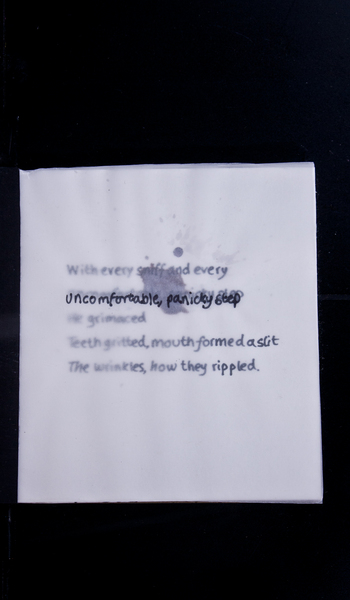 With every sniff and every
uncomfortable, panicky step
He grimaced
Teeth gritted, mouth formed a slit
The wrinkles, how they rippled.